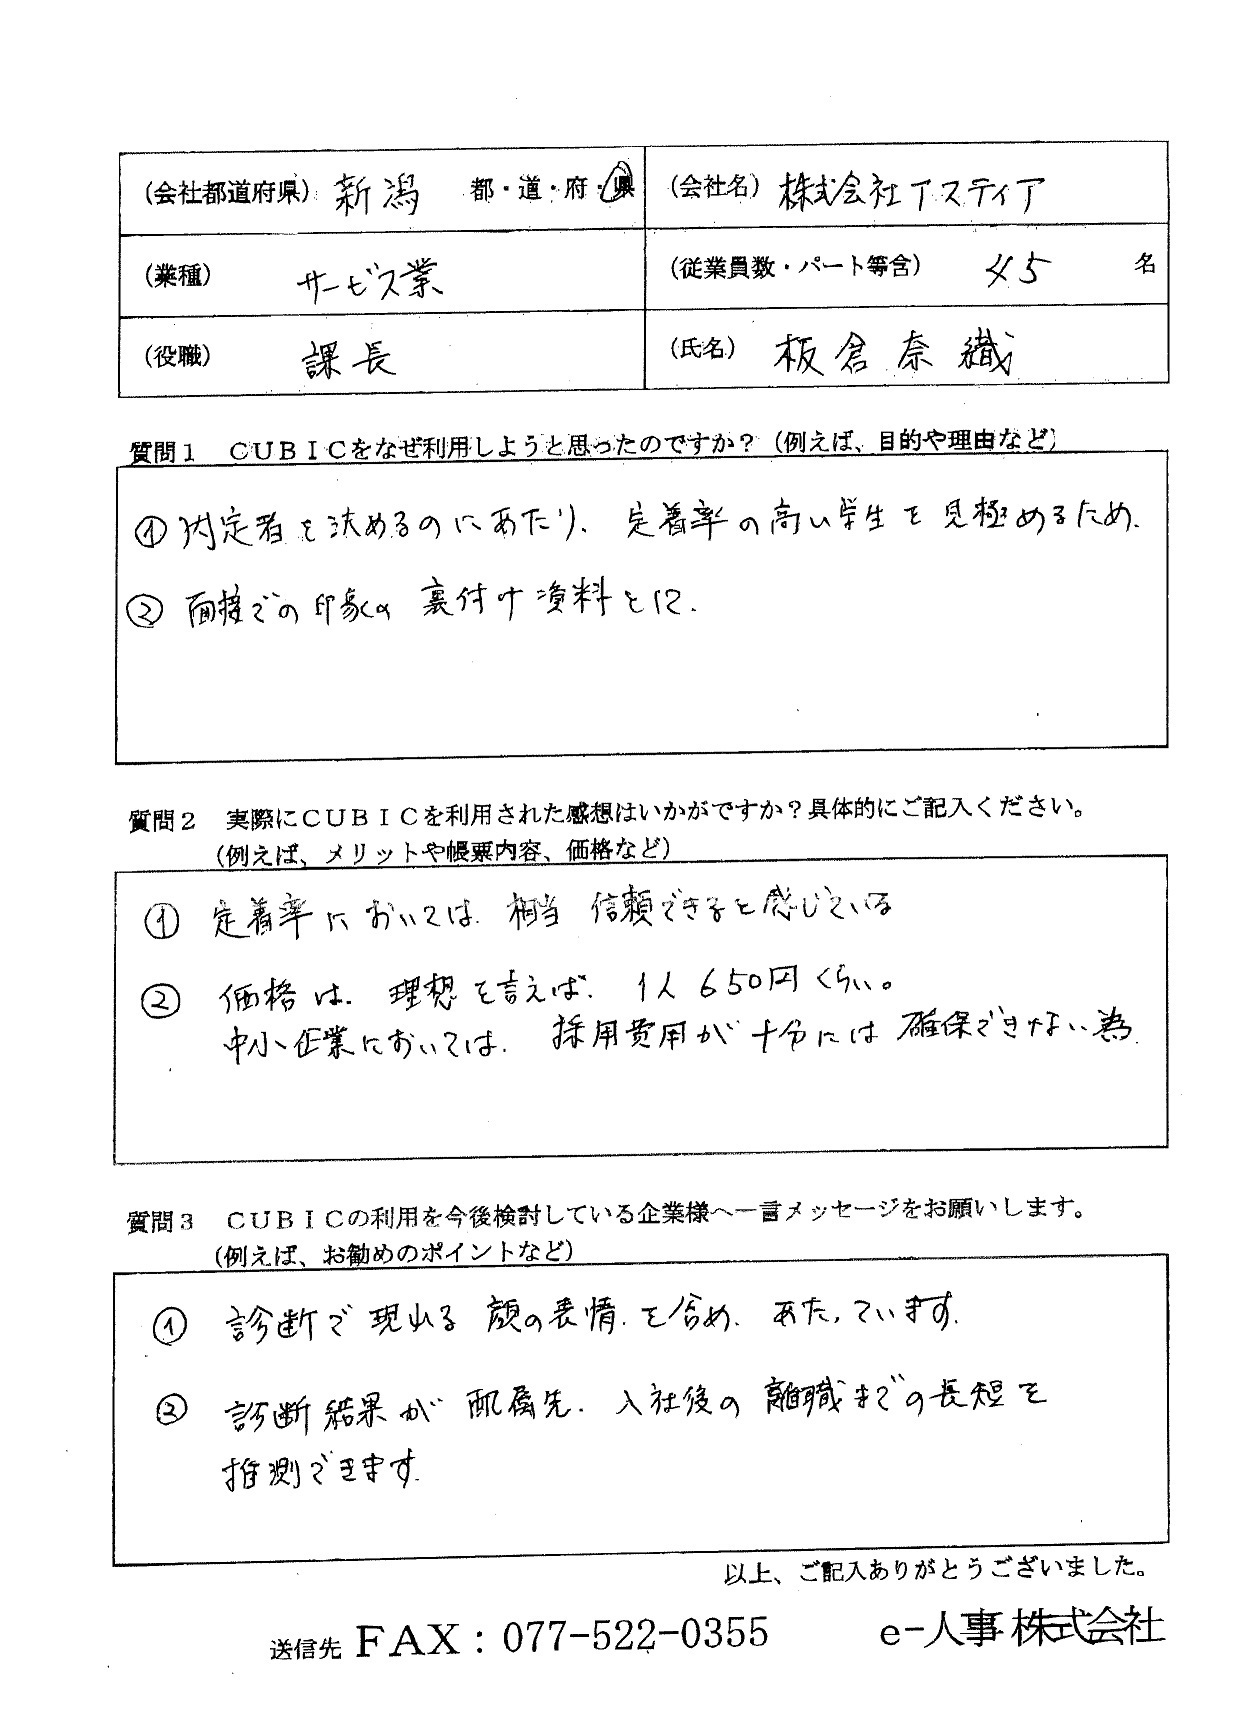 (会社都道府県) 新潟 都・道・府・県
(会社名) 株式会社アスティア
(業種) サービス業
(従業員数・パート等含) 45 名
(役職) 課長
(氏名) 板倉奈織
質問1 CUBICをなぜ利用しようと思ったのですか？(例えば、目的や理由など)
① 内定者を決めるのにあたり、定着率の高い学生を見極めるため.
② 面接での印象の裏付け資料とに.
質問2 実際にCUBICを利用された感想はいかがですか？具体的にご記入ください。
(例えば、メリットや帳票内容、価格など)
① 定着率においては. 相当 信頼できると感じている
② 価格は. 理想を言えば. 1人 650円くらい。
中小企業においては. 採用費用が十分には確保できない為.
質問3 CUBICの利用を今後検討している企業様へ一言メッセージをお願いします。
(例えば、お勧めのポイントなど)
① 診断で現れる 顔の表情. を含め. あたっています.
② 診断結果が 配属先. 入社後の離職までの長短を
推測できます.
以上、ご記入ありがとうございました。
送信先 FAX：077-522-0355 e-人事株式会社